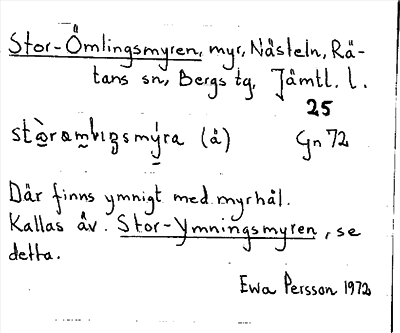 Stor-Ömlingsmyren, myr, Nästeln, Rä-
tans sn, Bergs tg, Jämtl. l.
25
(å) Gn 72
Där finns ymnigt med myrhål.
Kallas äv. Stor-Ymningsmyren, se
detta.
Ewa Persson 1972